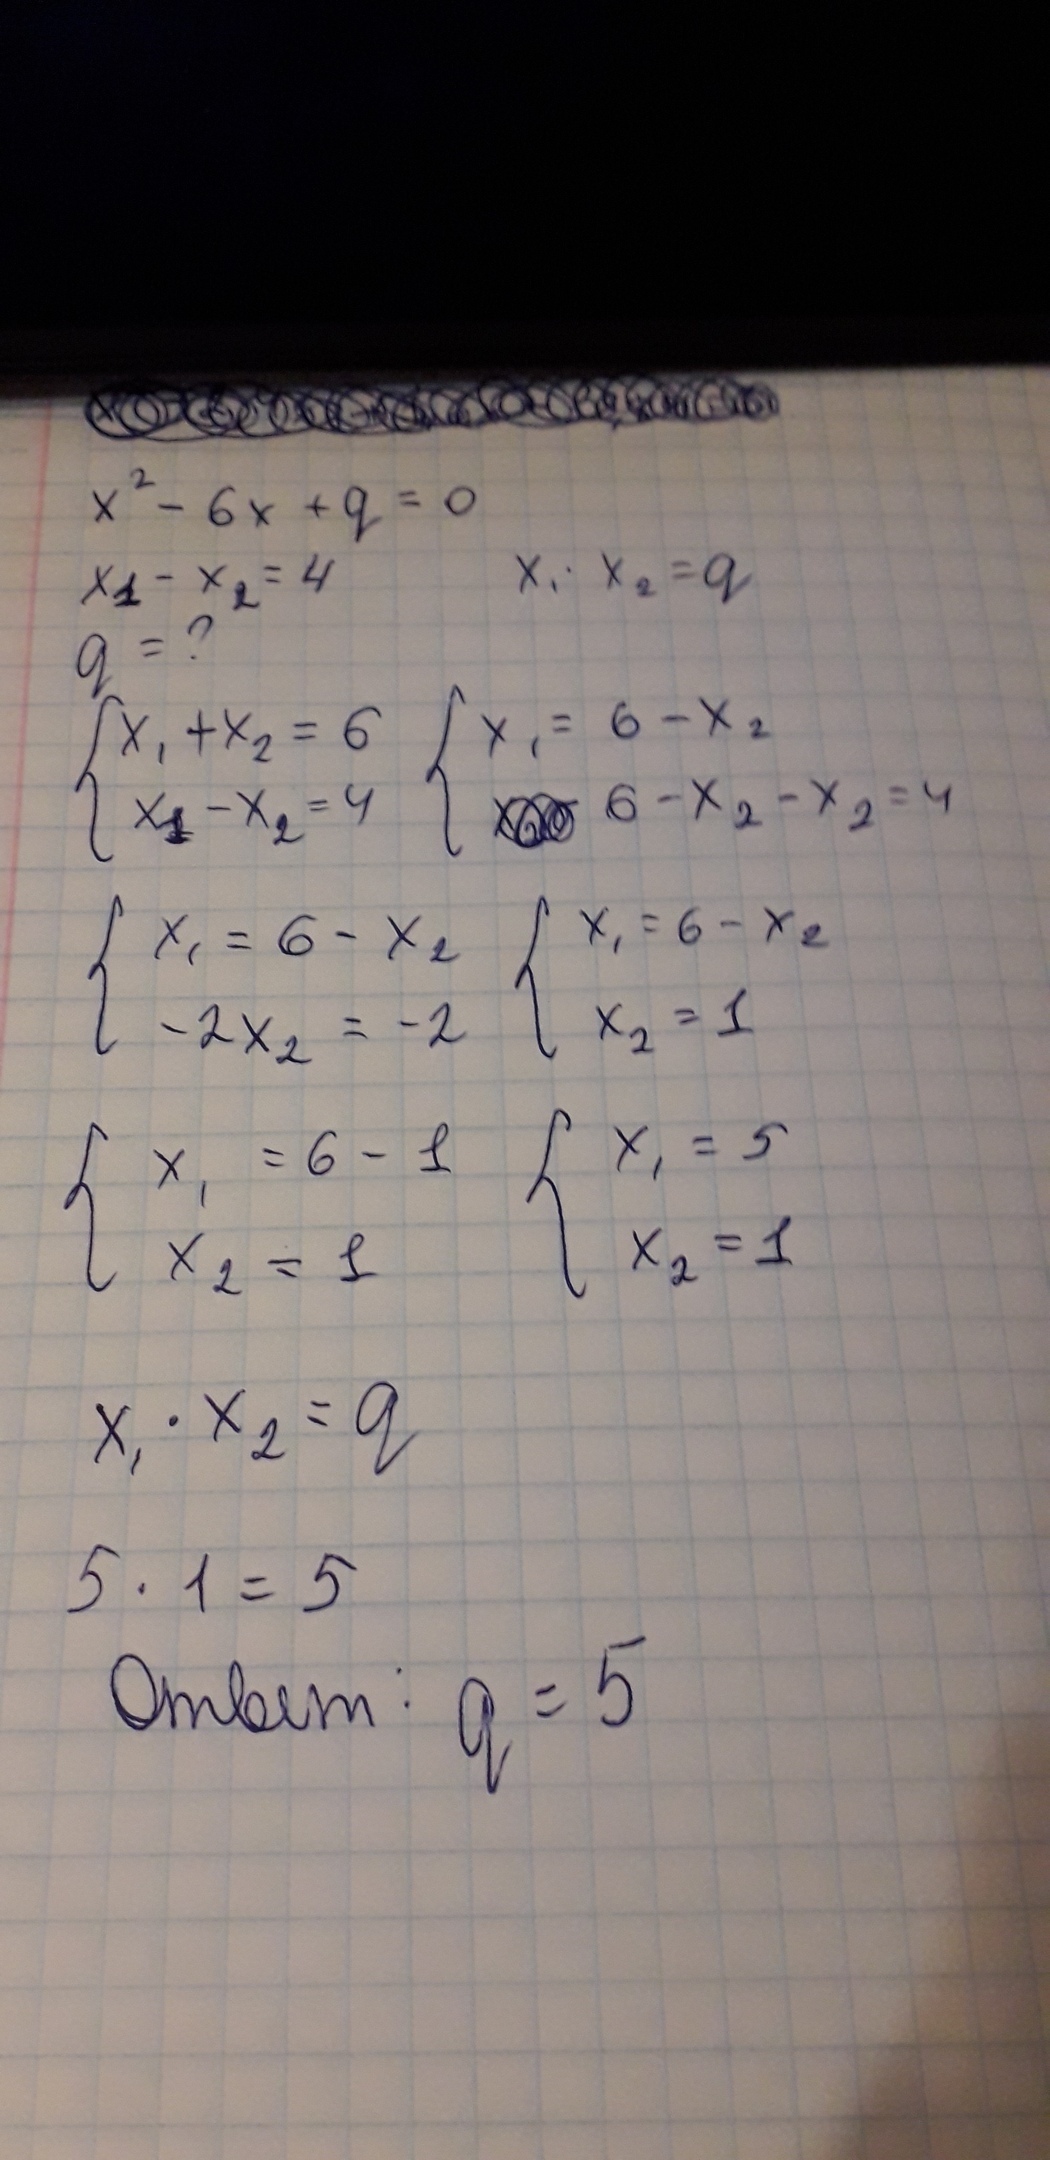 x² - 6x + q = 0
x₁ - x₂ = 4 x₁ · x₂ = q
q = ?
{ x₁ + x₂ = 6 { x₁ = 6 - x₂
x₁ - x₂ = 4 6 - x₂ - x₂ = 4
{ x₁ = 6 - x₂ { x₁ = 6 - x₂
-2x₂ = -2 x₂ = 1
{ x₁ = 6 - 1 { x₁ = 5
x₂ = 1 x₂ = 1
x₁ · x₂ = q
5 · 1 = 5
Ответ: q = 5